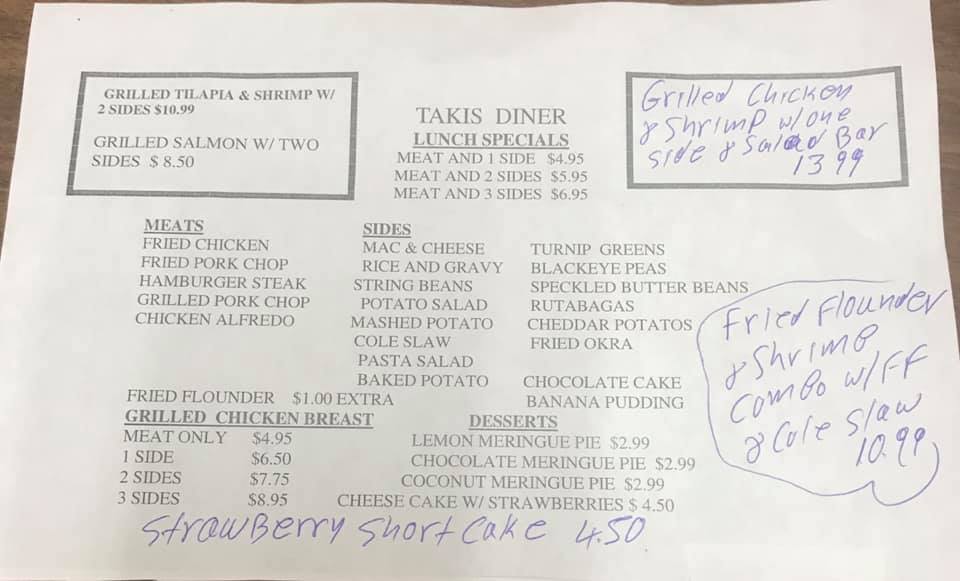 GRILLED TILAPIA & SHRIMP W/
2 SIDES $10.99
GRILLED SALMON W/ TWO
SIDES $ 8.50
TAKIS DINER
LUNCH SPECIALS
MEAT AND 1 SIDE $4.95
MEAT AND 2 SIDES $5.95
MEAT AND 3 SIDES $6.95
Grilled Chicken
& Shrimp w/one
side & Salad Bar
13 99
MEATS
FRIED CHICKEN
FRIED PORK CHOP
HAMBURGER STEAK
GRILLED PORK CHOP
CHICKEN ALFREDO
SIDES
MAC & CHEESE
RICE AND GRAVY
STRING BEANS
POTATO SALAD
MASHED POTATO
COLE SLAW
PASTA SALAD
BAKED POTATO
TURNIP GREENS
BLACKEYE PEAS
SPECKLED BUTTER BEANS
RUTABAGAS
CHEDDAR POTATOS
FRIED OKRA
CHOCOLATE CAKE
BANANA PUDDING
Fried Flounder
& Shrimp
Combo w/ FF
& Cole Slaw
10.99
FRIED FLOUNDER $1.00 EXTRA
GRILLED CHICKEN BREAST
MEAT ONLY $4.95
1 SIDE $6.50
2 SIDES $7.75
3 SIDES $8.95
DESSERTS
LEMON MERINGUE PIE $2.99
CHOCOLATE MERINGUE PIE $2.99
COCONUT MERINGUE PIE $2.99
CHEESE CAKE W/ STRAWBERRIES $ 4.50
StrawBerry Short Cake 4.50